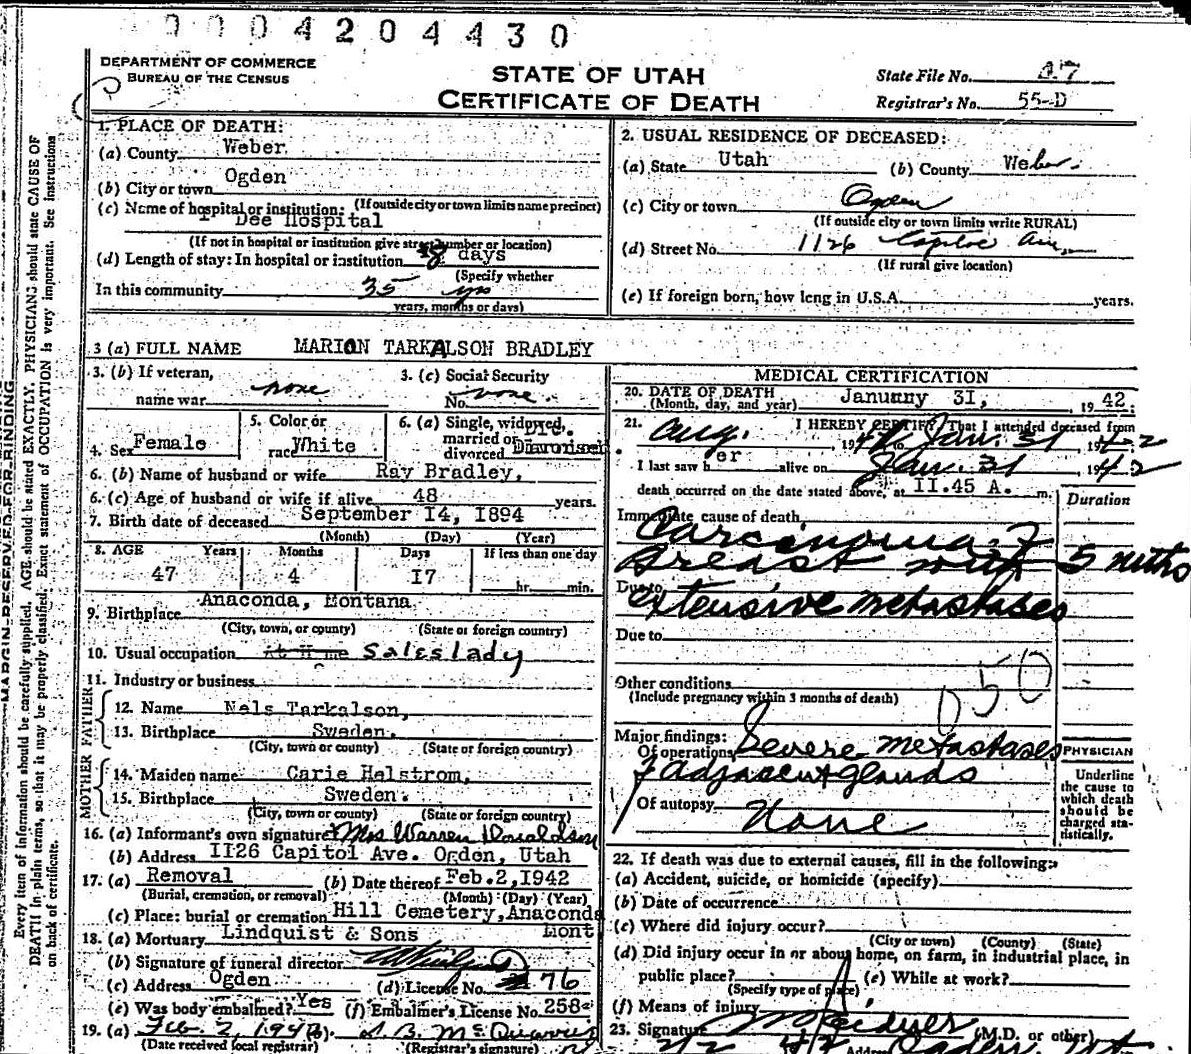 0004204430
DEPARTMENT OF COMMERCE
BUREAU OF THE CENSUS
STATE OF UTAH
CERTIFICATE OF DEATH
State File No. 27
Registrar's No. 55-D
MARGIN RESERVED FOR BINDING
Every item of information should be carefully supplied. AGE should be stated EXACTLY. PHYSICIANS should state CAUSE OF
DEATH in plain terms, so that it may be properly classified. Exact statement of OCCUPATION is very important. See instructions
on back of certificate.
1. PLACE OF DEATH:
(a) County Weber
(b) City or town Ogden
(If outside city or town limits name precinct)
(c) Name of hospital or institution:
Dee Hospital
(If not in hospital or institution give street number or location)
(d) Length of stay: In hospital or institution 8 days
(Specify whether
In this community 35 yrs
years, months or days)
2. USUAL RESIDENCE OF DECEASED:
(a) State Utah (b) County Weber
(c) City or town Ogden
(If outside city or town limits write RURAL)
(d) Street No. 1126 Capitol Ave.
(If rural give location)
(e) If foreign born, how long in U.S.A. years.
3 (a) FULL NAME MARION TARKALSON BRADLEY
3. (b) If veteran,
name war none
3. (c) Social Security
No. none
4. Sex Female
5. Color or
race White
6. (a) Single, widowed,
married or
divorced
6. (b) Name of husband or wife Ray Bradley,
6. (c) Age of husband or wife if alive 48 years.
7. Birth date of deceased September 14, 1894
(Month) (Day) (Year)
8. AGE Years Months Days If less than one day
47 4 17 hr. min.
9. Birthplace Anaconda, Montana
(City, town, or county) (State or foreign country)
10. Usual occupation At Home Saleslady
11. Industry or business
FATHER
12. Name Nels Tarkalson,
13. Birthplace Sweden.
(City, town or county) (State or foreign country)
MOTHER
14. Maiden name Carie Halstrom,
15. Birthplace Sweden.
(City, town or county) (State or foreign country)
16. (a) Informant's own signature Mrs Warren Donaldson
(b) Address 1126 Capitol Ave. Ogden, Utah
17. (a) Removal (b) Date thereof Feb.2,1942
(Burial, cremation, or removal) (Month) (Day) (Year)
(c) Place: burial or cremation Hill Cemetery, Anaconda
Mont
18. (a) Mortuary Lindquist & Sons
(b) Signature of funeral director
(c) Address Ogden (d) License No. 76
(e) Was body embalmed? Yes (f) Embalmer's License No. 258
19. (a) Feb. 2, 1942 (b)
(Date received local registrar) (Registrar's signature)
MEDICAL CERTIFICATION
20. DATE OF DEATH
(Month, day, and year) January 31, 1942.
21. I HEREBY CERTIFY, That I attended deceased from
Aug. 1941 to Jan. 31 1942
I last saw her alive on Jan. 31 1942
death occurred on the date stated above, at 11.45 A. m.
Duration
Immediate cause of death
Carcinoma of
Breast with 5 mths
Due to
extensive metastases
Due to
Other conditions
(Include pregnancy within 3 months of death)
050
Major findings:
Of operations Severe metastases
of adjacent glands
Of autopsy None
PHYSICIAN
Underline
the cause to
which death
should be
charged sta-
tistically.
22. If death was due to external causes, fill in the following:
(a) Accident, suicide, or homicide (specify)
(b) Date of occurrence
(c) Where did injury occur?
(City or town) (County) (State)
(d) Did injury occur in or about home, on farm, in industrial place, in
public place? (e) While at work?
(Specify type of place)
(f) Means of injury
23. Signature (M.D. or other)
Address Ogden Ut.